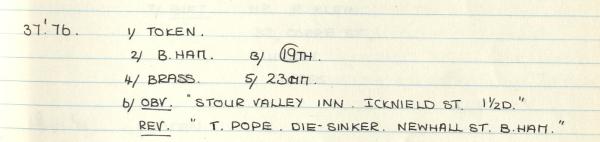 37'.76. 1/ TOKEN.
2/ B.HAM. 3/ 19TH.
4/ BRASS. 5/ 23mm.
6/ OBV. "STOUR VALLEY INN. ICKNIELD ST. 1½D."
REV. "T. POPE. DIE-SINKER. NEWHALL ST. B.HAM."